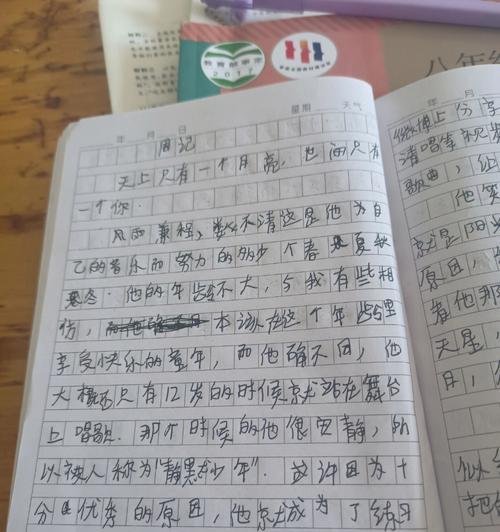 教育部审定
2017
八年
年 月 日 星期 天气
周记
天上只有一个月亮，也而只有
一个你.
风雨兼程，数不清这是他为自
己的音乐而努力的多少个春夏秋
冬. 他的年龄不大，与我有些相
仿， 本该在这个年龄里
享受快乐的童年，而他确不同，他
大概还只有12岁的时候就站在舞台
上唱歌. 那个时候的他很安静，所
以被人称为“静默少年”. 这许因为十
分优秀的原因，他就成为了练习
年 月
微博上分享
清唱
歌曲，
他笑
就是阳
原因，
着他那
天星，
月，
似
把